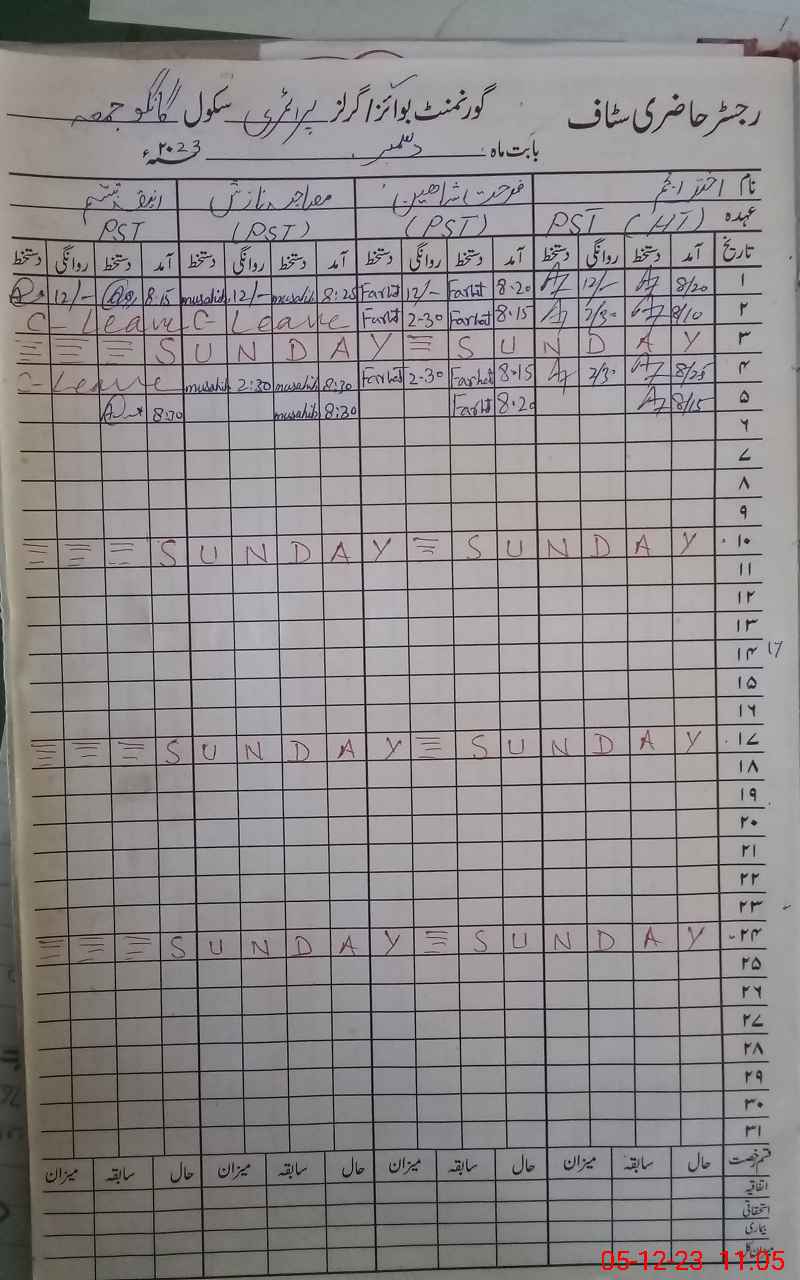 رجسٹر حاضری سٹاف گورنمنٹ بوائز/گرلز پرائمری سکول گانگو جمعہ
بابت ماہ دسمبر ۲۰23ء
نام اختر انجم فرحت شاہین مصاحبہ نازش انیقہ تبسم
عہدہ PST (HT) (PST) (PST) PST
تاریخ آمد دستخط روانگی دستخط آمد دستخط روانگی دستخط آمد دستخط روانگی دستخط آمد دستخط روانگی دستخط
۱ 8/20 12/- 8.20 Farhat 12/- Farhat 8:25 musahib 12/- musahib 8:15 12/-
۲ 8/10 2/30 8.15 Farhat 2-30 Farhat C-Leave C-Leave
۳ SUNDAY SUNDAY
۴ 8/25 2/30 8.15 Farhat 2.30 Farhat 8:30 musahib 2:30 musahib C-Leave
۵ 8/15 8.20 Farhat 8:30 musahib 8:30
۶
۷
۸
۹
۱۰ SUNDAY SUNDAY
۱۱
۱۲
۱۳
۱۴ 17
۱۵
۱۶
۱۷ SUNDAY SUNDAY
۱۸
۱۹
۲۰
۲۱
۲۲
۲۳
۲۴ SUNDAY SUNDAY
۲۵
۲۶
۲۷
۲۸
۲۹
۳۰
۳۱
قسم رخصت حال سابقہ میزان حال سابقہ میزان حال سابقہ میزان حال سابقہ میزان
اتفاقیہ
استحقاقی
بیماری
05-12-23 11:05